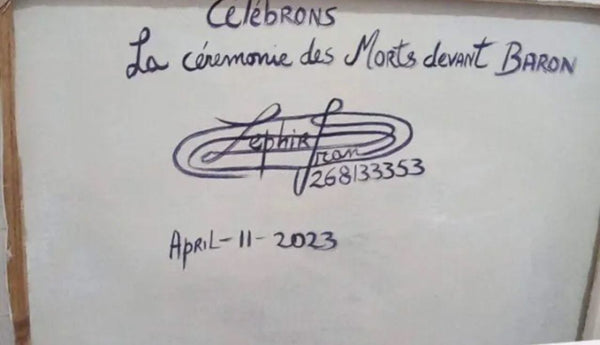 Celébrons
La céremonie des Morts devant BARON
Zephir
Jran
268133353
April-11-2023